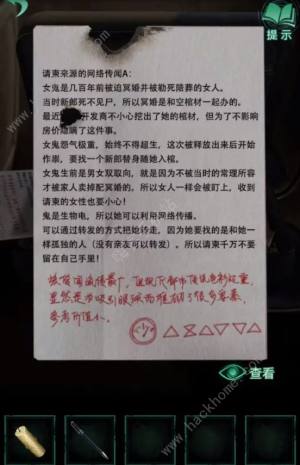 提示
请柬来源的网络传闻A：
女鬼是几百年前被迫冥婚并被勒死陪葬的女人。
当时新郎死不见尸，所以冥婚是和空棺材一起办的。
最近 开发商不小心挖出了她的棺材，但为了不影响
房价隐瞒了这件事。
女鬼怨气极重，始终不得超生，这次被释放出来后开始
作祟，要找一个新郎替身随她入棺。
女鬼生前是男女双取向，就是因为不被当时的常理所容
才被家人卖掉配冥婚的，所以女人一样会被盯上，收到
请柬的女性也要小心！
鬼是生物电，所以她可以利用网络传播。
可以通过转发的方式把她转走，因为她要找的是和她一
样孤独的人（没有亲友可以转发）。所以请柬千万不要
留在自己手里！
该传闻流传最广，但
显然是为吸引眼球而
参考价值小。
少
查看
www.hackhome.com